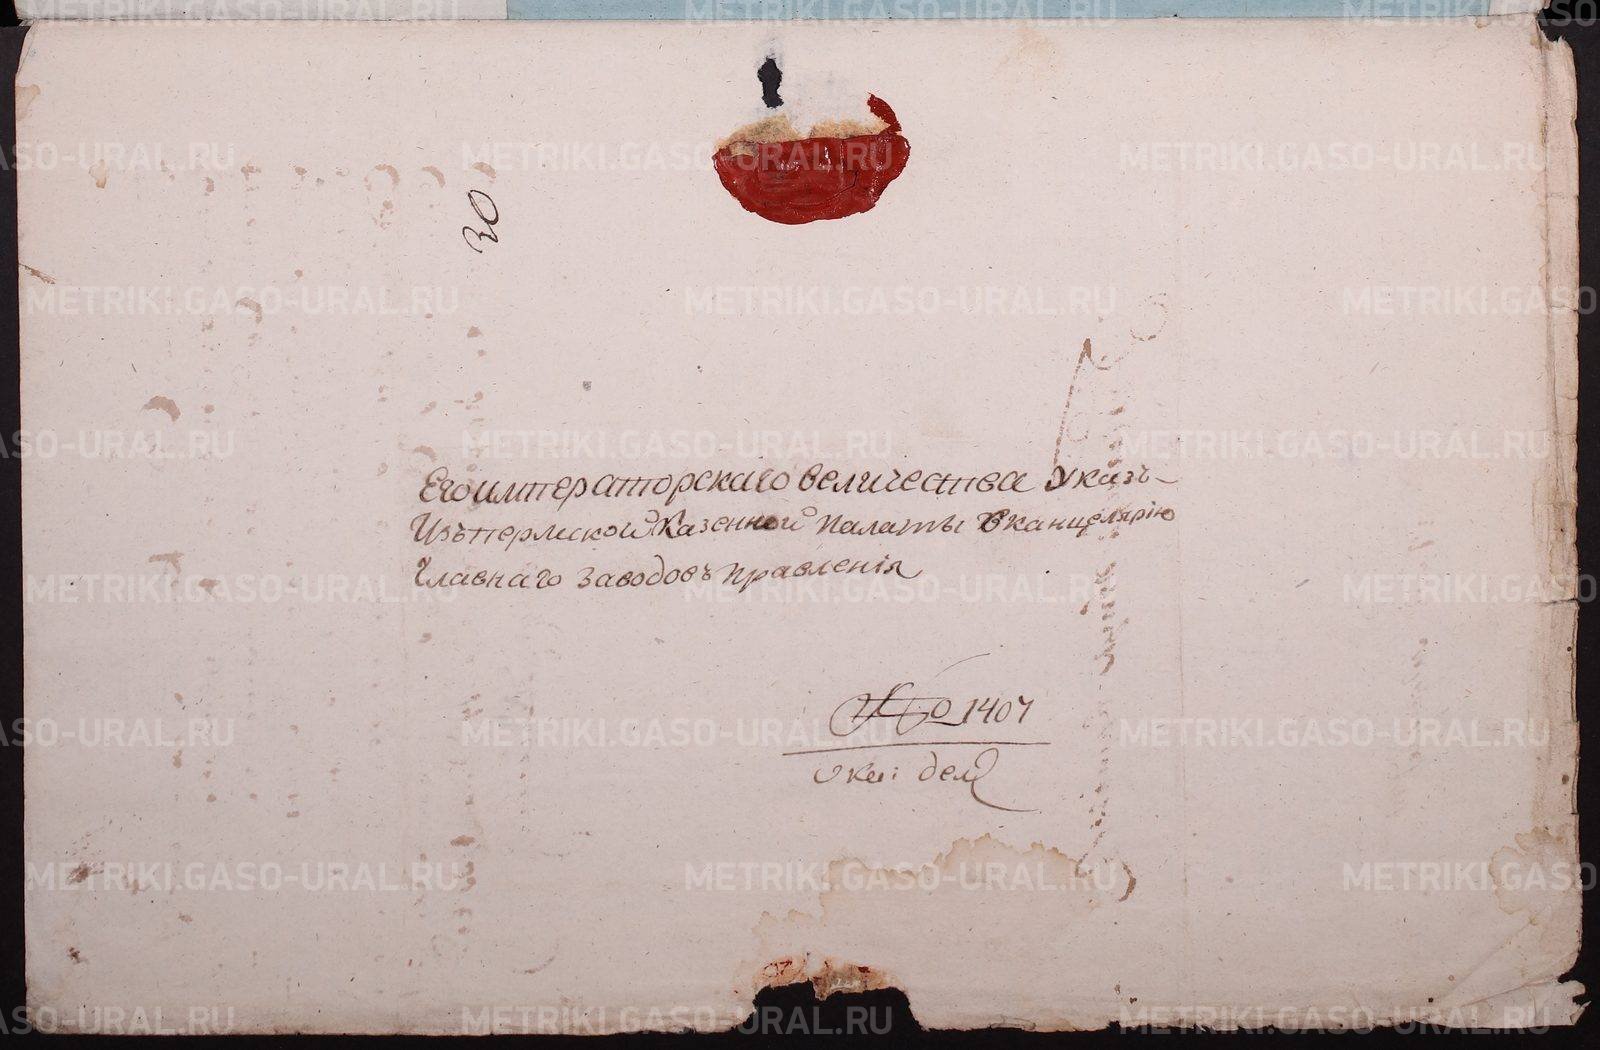 30
Его императорскаго величества Указъ
Изъ пермской Казенной палаты в канцелярію
главнаго заводовъ правленія
1407
METRIKI.GASO-URAL.RU